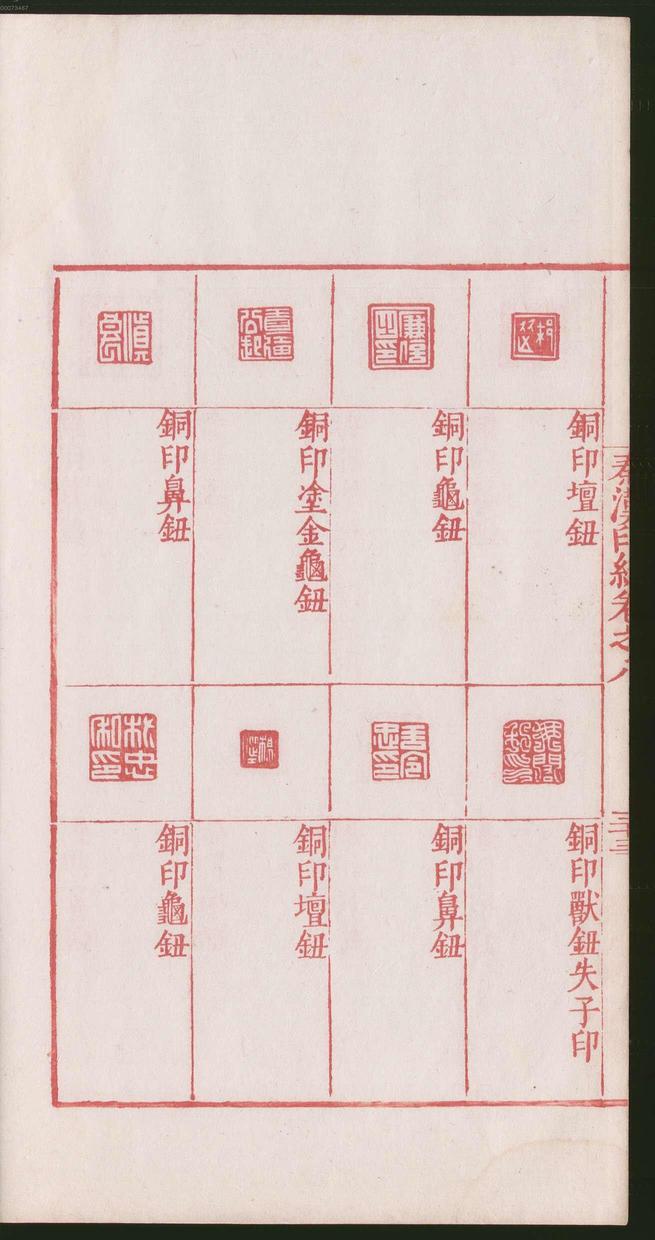 00073467
秦漢印統卷之八
三十三
銅印壇鈕
銅印龜鈕
銅印塗金龜鈕
銅印鼻鈕
銅印獸鈕失子印
銅印鼻鈕
銅印壇鈕
銅印龜鈕